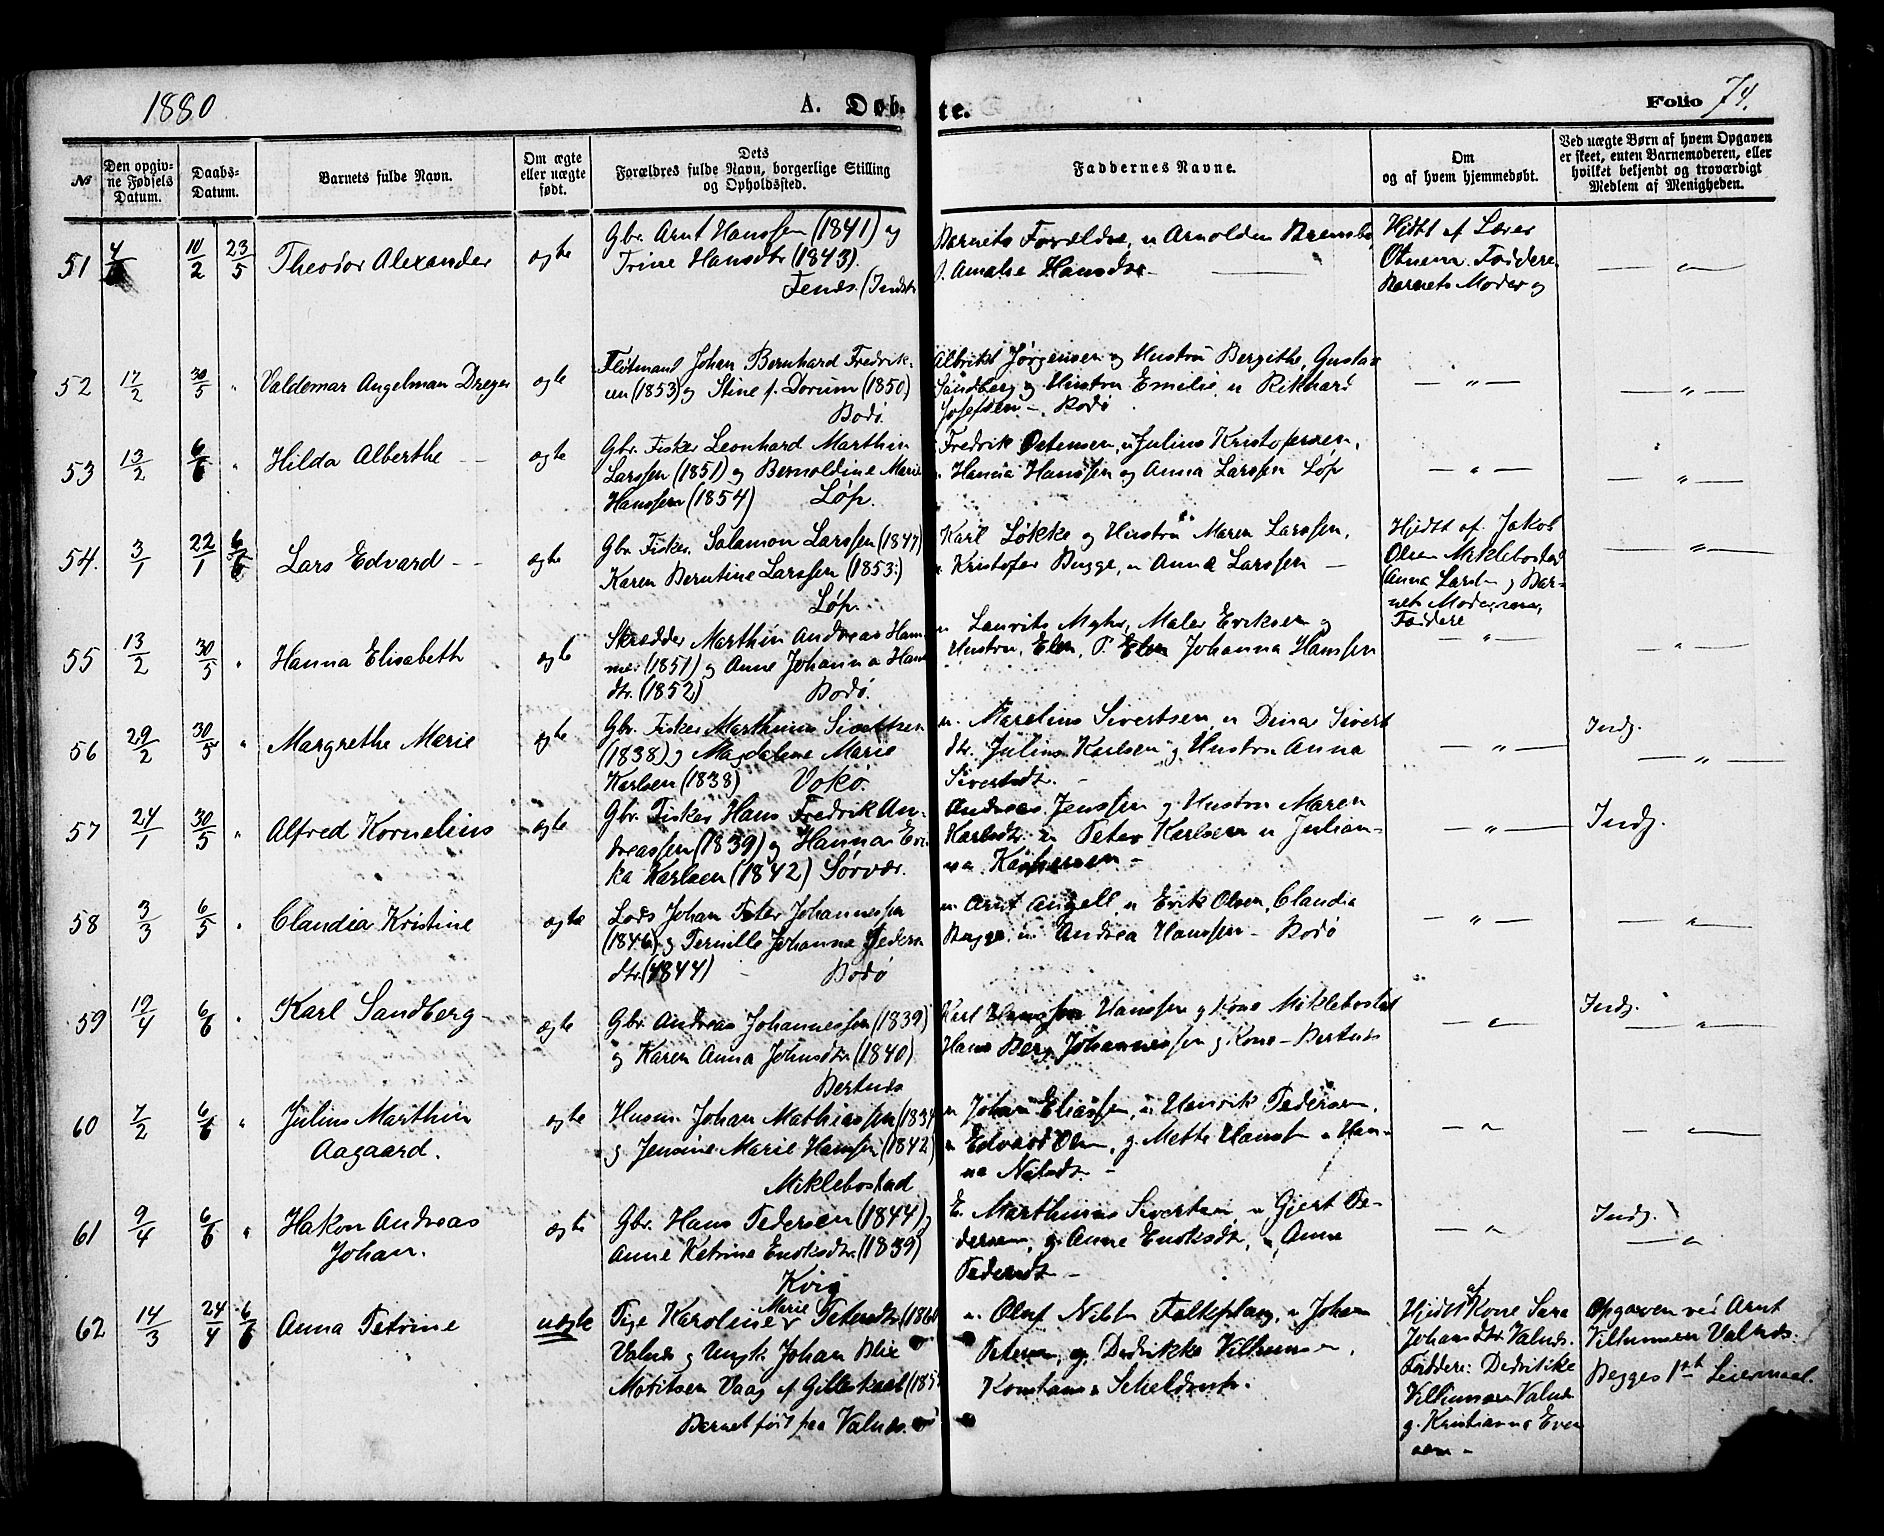 1880 A. Døb- te. Folio 74.
№
Den opgiv-
ne Fødsels
Datum.
Daabs-
Datum.
Barnets fulde Navn.
Om ægte
eller uægte
født.
Dets
Forældres fulde Navn, borgerlige Stilling
og Opholdssted.
Faddernes Navne.
Om
og af hvem hjemmedøbt.
Ved uægte Børn af hvem Opgaven
er skeet, enten Barnemoderen, eller
hvilket bekjendt og troværdigt
Medlem af Menigheden.
51 10/2 23/5 Theodor Alexander ægte
Gbr. Arnt Hanssen (1841) og
Trine Hansdtr (1843).
Barnets Forældre, u Arnoldus
P. Amalie Hansdtr
Hjdt af Lærer
Faddere
Barnets Moder og
— " —
52 17/2 30/5 " Valdemar Angelman Dreyer ægte
Flødmand Johan Bernhard Fredrik-
sen (1853) og Stine f. Dorum (1850)
Bodø
Albrikt Jørgensen og Hustru Bergithe, Gustav
Sandberg og Hustru Emilie, u Rikhard
Josefsen — Bodø
— " —
— " —
53 13/2 6/6 " Hilda Alberthe — ægte
Gbr. Fisker Leonhard Marthin
Larssen (1851) og Bernoldine Marie
Hanssen (1854) Løp.
Fredrik Petersen, u Julius Kristofersen,
u Hanna Hanssen og Anna Larssen Løp
— " —
— " —
54. 3/1 22/1 6/6 Lars Edvard — ægte
Gbr. Fisker Salamon Larssen (1847)
Karen Berntine Larssen (1853)
Løp.
Karl Løkke og Hustru Maren Larssen,
u Kristofer Bugge, u Anna Larssen —
Hjdt af Jakob
Olsen Miklebostad
(Anna Larsdtr og Bar-
nets Moder, vare
Faddere
— " —
55 13/2 30/5 " Hanna Elisabeth ægte
Skrædder Marthin Andreas Ham-
mer (1851) og Anne Johanna Hans
dtr. (1852) Bodø.
u Laurits Myhr, Maler Eriksen og
Hustru, Elen, P. Elen Johanna Hanssen
— " —
— " —
56 29/2 30/5 " Margrethe Marie ægte
Gbr. Fisker Marthinus Sivertsen
(1838) og Magdalene Marie
Karlsen (1838) Voko.
u. Marelius Sivertsen, u Dina Sivert
dtr. Julius Karlsen og Hustru Anna
Sivertsdtr. —
— " —
Indg.
— " —
57 24/1 30/5 " Alfred Kornelius ægte
Gbr. Fisker Hans Fredrik An-
dreassen (1839) og Hanna Eri-
ka Karlsen (1842) Sørvær.
Andreas Jenssen og Hustru Maren
Karlsdtr. u Peter Karlsen u Julian-
na —
— " —
Indg.
58 3/3 6/5 " Claudia Kristine ægte
Lods Johan Peter Johannessen
(1846) og Pernille Johanne Peders
dtr. (1844) — Bodø
u Arnt Angell, u Erik Olsen, Claudia
Bugge, u Andrea Hanssen — Bodø
— " —
— " —
59 19/4 6/6 " Karl Sandberg — ægte
Gbr. Andreas Johannessen (1839)
og Karen Anna Johnsdtr (1840)
Bertnes
Karl Hanssen og Kone Miklebostad
Hans Berg Johannessen og Kone — Bertnes
— " —
Indg.
— " —
60 7/2 6/6 " Julius Marthin
Aagaard. ægte
Husm. Johan Mathiassen (1834
og Jensine Marie Hanssen (1842)
Miklebostad
u Johan Eliassen, u Henrik Pedersen,
u Edvard Olsen, og Mette Hansdtr u Han-
na Nilsdtr. —
— " —
— " —
61 9/4 6/6 " Hakon Andreas
Johan. ægte
Gbr. Hans Pedersen (1844) og
Anne Katrine Enoksdtr. (1839)
E. Marthinus Sivertsen, u Gjert Pe-
dersen, og Anne Enoksdtr, u Anne
Pedersdtr —
— " —
Indg.
— " —
62 14/3 24/4 6/6 Anna Petrine uægte
Pige Karoline Marie Petersdtr (186
Valnes og Ungk. Johan Blix
Motitsen Vaag af Gilleskaal (185
Barnet født paa Valnes.
u Oluf Nilsen u Johan
Petersen, og Dedrikke
Hjdt af Kone Sara
Johansdtr. Valnes.
Faddere: Dedrikke
Valnes
og Kristianna Even
sen —
Opgaven ved Arnt
Valnes.
Begges 1ste Leiermaal.